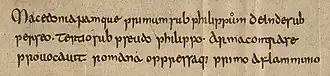 Macedonia namque primum sub philippum deinde sub
perseo. Tertio sub pseudo philippo. Arma contra re
provocavit romana oppressaq; primo a flaminio